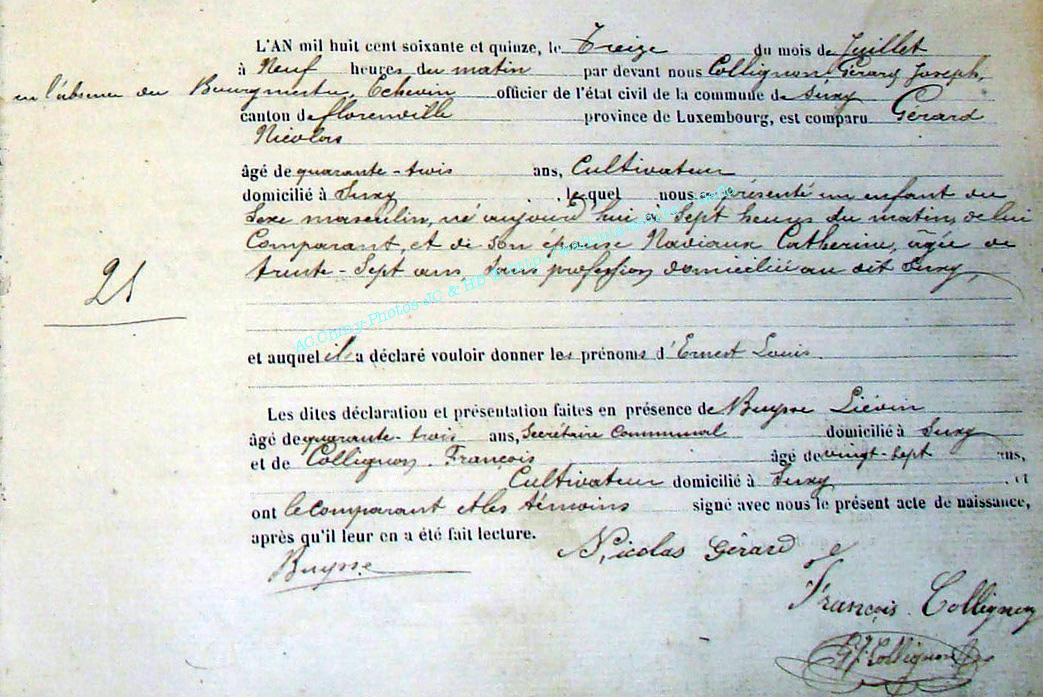 L'AN mil huit cent soixante et quinze, le Treize du mois de Juillet
à Neuf heures du matin par devant nous Collignon Gérard Joseph,
en l'absence du Bourgmestre, Echevin officier de l'état civil de la commune de Suxy
canton de florenville province de Luxembourg, est comparu Gérard
Nicolas
âgé de quarante-trois ans, Cultivateur
domicilié à Suxy , lequel nous a présenté un enfant du
Sexe masculin, né aujourd'hui à Sept heures du matin, de lui
Comparant, et de Son épouse Naviaux Catherine, âgée de
trente-Sept ans, Sans profession, domiciliée au dit Suxy,
21
AC Chiny-Photos JC & HB
et auquel il a déclaré vouloir donner les prénoms d'Ernest Louis.
Les dites déclaration et présentation faites en présence de Buysse Liévin
âgé de quarante-trois ans, Secrétaire Communal domicilié à Suxy
et de Collignon François âgé de vingt-sept ans,
Cultivateur domicilié à Suxy , et
ont le comparant et les témoins signé avec nous le présent acte de naissance,
après qu'il leur en a été fait lecture.
Nicolas Gérard
Buysse
François Collignon
GJ Collignon